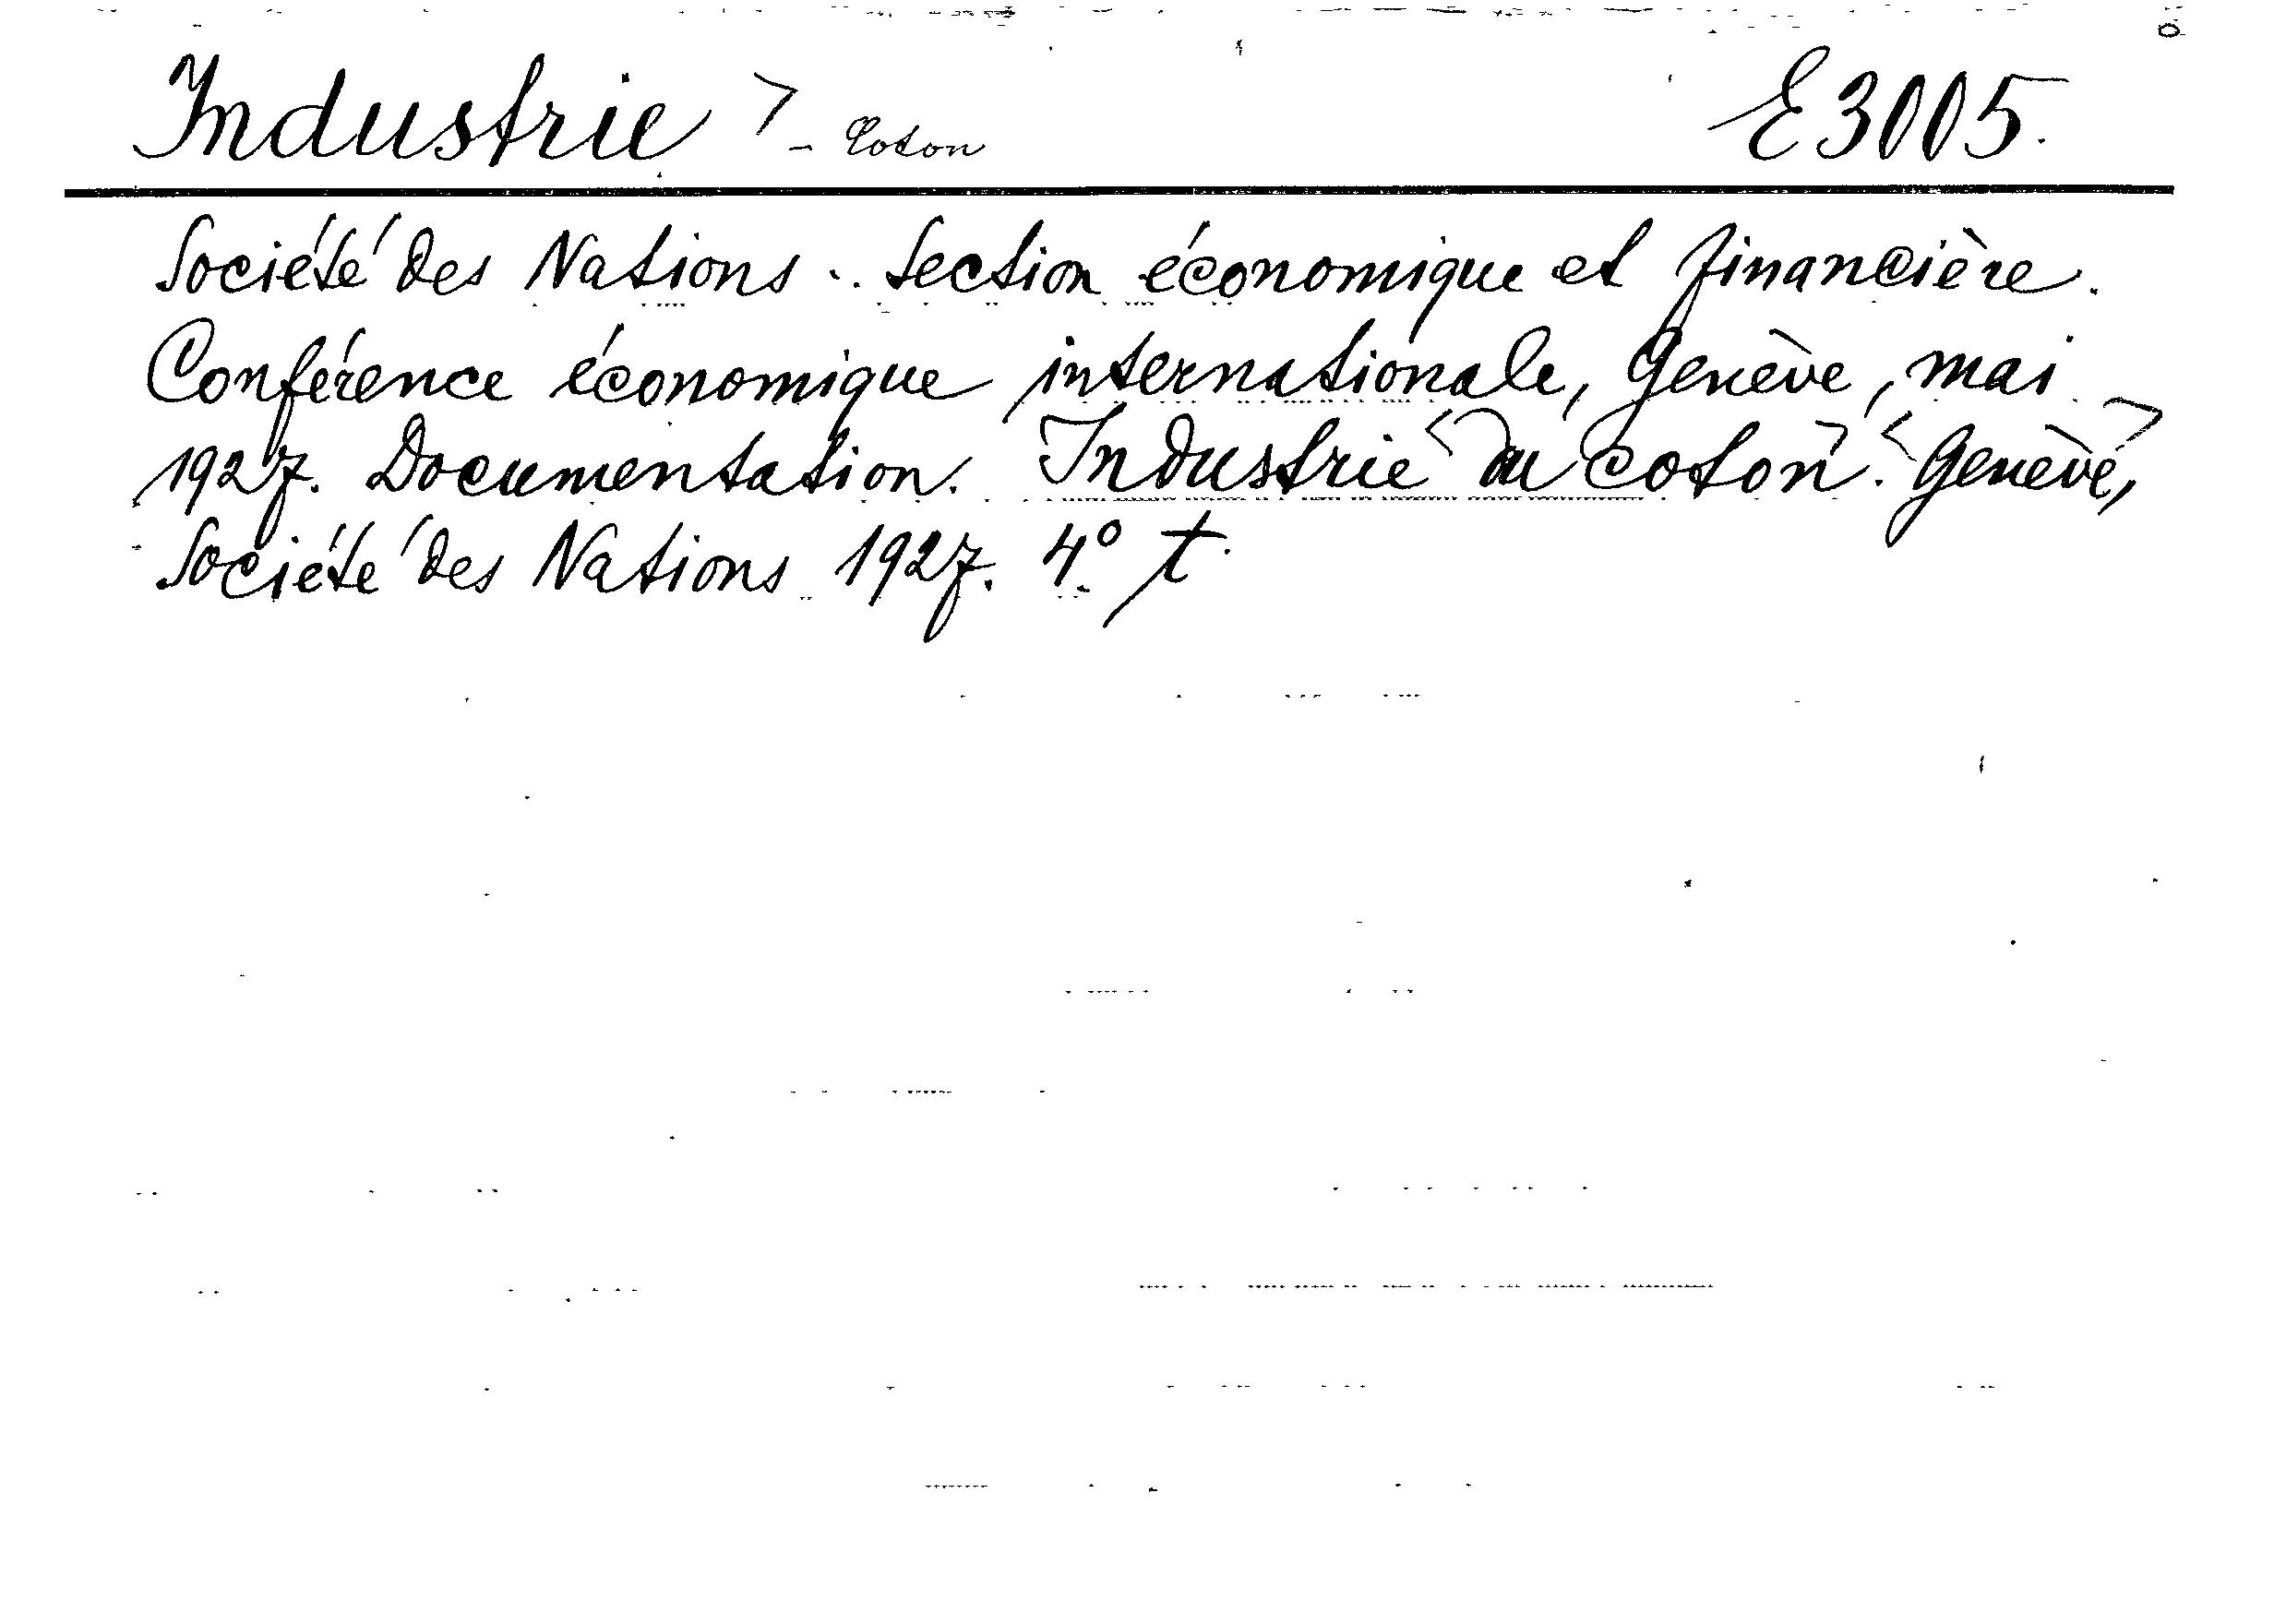 Industrie - Coton E3005.
Société des Nations. Section économique et financière.
Conférence économique internationale, Genève, mai
1927. Documentation. Industrie du coton. Genève,
Société des Nations 1927. 4° t.